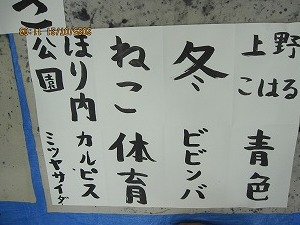 上野
こはる
冬
ねこ
ほり内
公園
青色
ビビンバ
体育
カルピス
ミツヤサイダ